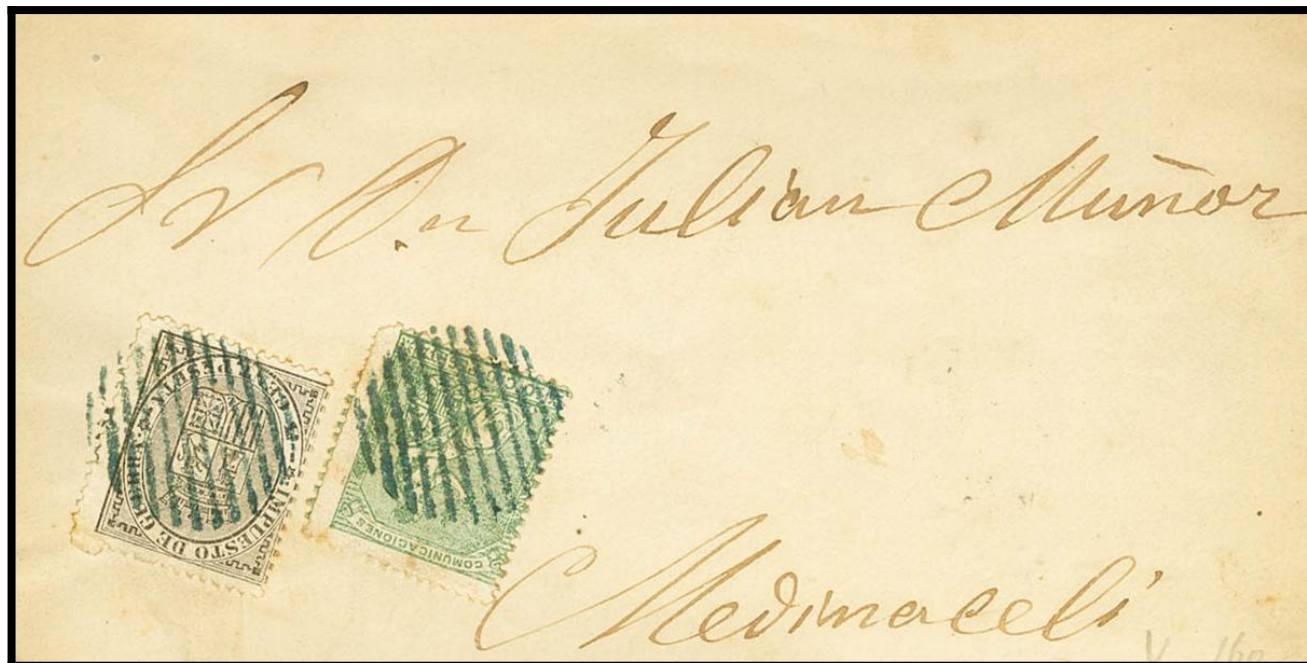 Sr Dn Julian Muñoz
IMPUESTO DE GUERRA
PESETA
COMUNICACIONES
Medinaceli